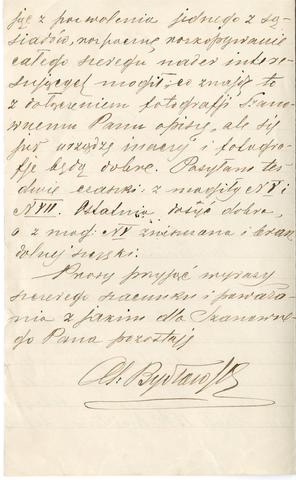 jąc z pozwolenia jednego z są-
siadów, rozpocznę rozkopywanie
całego szeregu nader intere-
sujących mogił; co znajdę to
z dołączeniem fotografji Szano-
wnemu Panu opiszę, ale się
już urządzę inaczej i fotogra-
fje będą dobre. Posyłam też
dwie czaszki: z mogiły № V i
№ VII. Ostatnia dosyć dobra,
a z mog: № V zwietrzała i brak
dolnej szczęki.
Proszę przyjąć wyrazy
szczerego szacunku i poważa-
nia z jakim dla Szanowne-
go Pana pozostaję